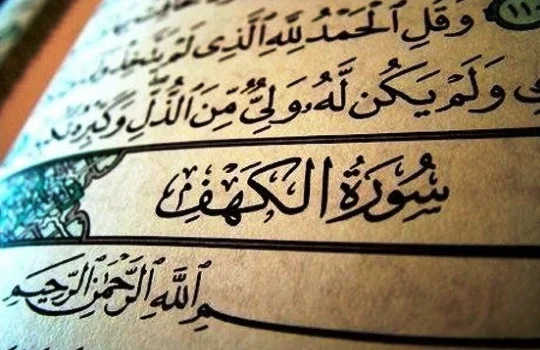 ١١٠ وَقُلِ ٱلْحَمْدُ لِلَّهِ ٱلَّذِى لَمْ يَتَّخِذْ
وَلَمْ يَكُن لَّهُۥ وَلِىٌّ مِّنَ ٱلذُّلِّ وَكَبِّرْهُ
سُورَةُ الكَهْفِ
بِسْمِ ٱللَّهِ ٱلرَّحْمَٰنِ ٱلرَّحِيمِ